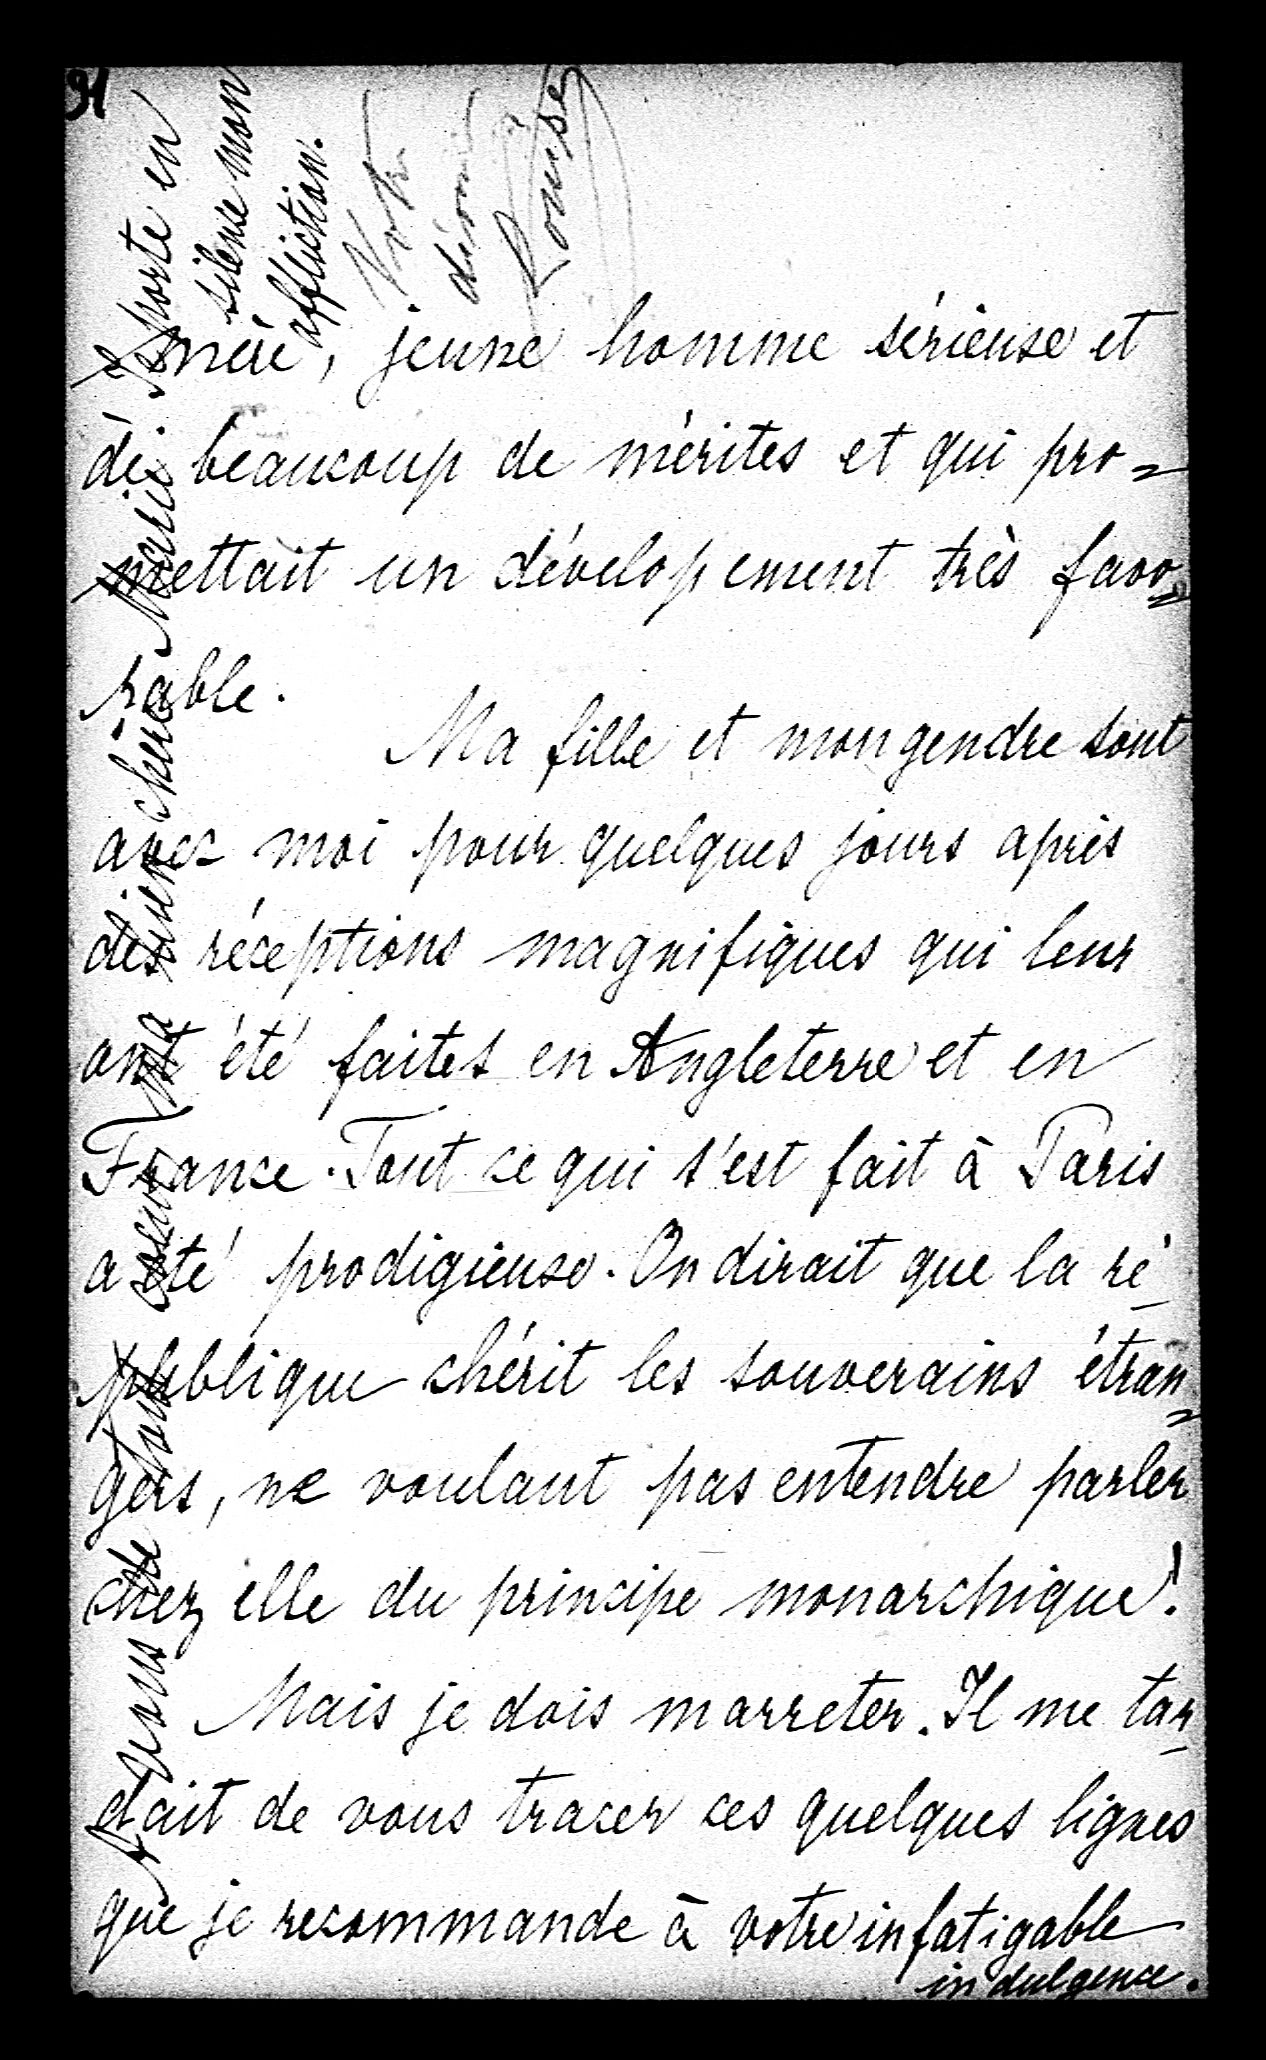 91
mère, jeune homme sérieuse et
de beaucoup de mérites et qui pro=
mettait un dévelopement très favo=
rable.
Ma fille et mon gendre sont
avec moi pour quelques jours après
des réceptions magnifiques qui leur
ont été faites en Angleterre et en
France. Tout ce qui s'est fait à Paris
a été prodigieuse. On dirait que la ré-
publique chérit les souverains étran=
gers, ne voulant pas entendre parler
chez elle du principe monarchique!
Mais je dois marreter. Il me tar-
dait de vous tracer ces quelques lignes
que je recommande à votre infatigable
indulgence.
A vous de tout coeur ma bien chère Marie
porte en
silense mon
affliction.
Louise